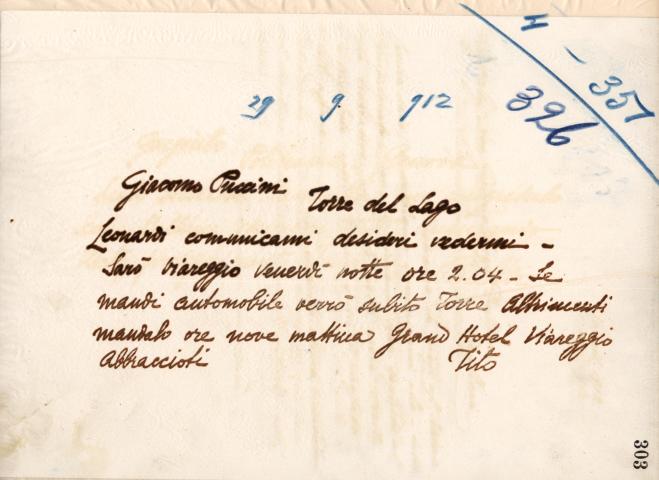 H - 357
326
29 9 912
Giacomo Puccini Torre del Lago
Leonardi comunicami desideri vedermi -
Sarò Viareggio venerdì notte ore 2.04 - Se
mandi automobile verrò subito Torre Altrimenti
mandalo ore nove mattina Grand Hotel Viareggio
Abbraccioti Tito
303